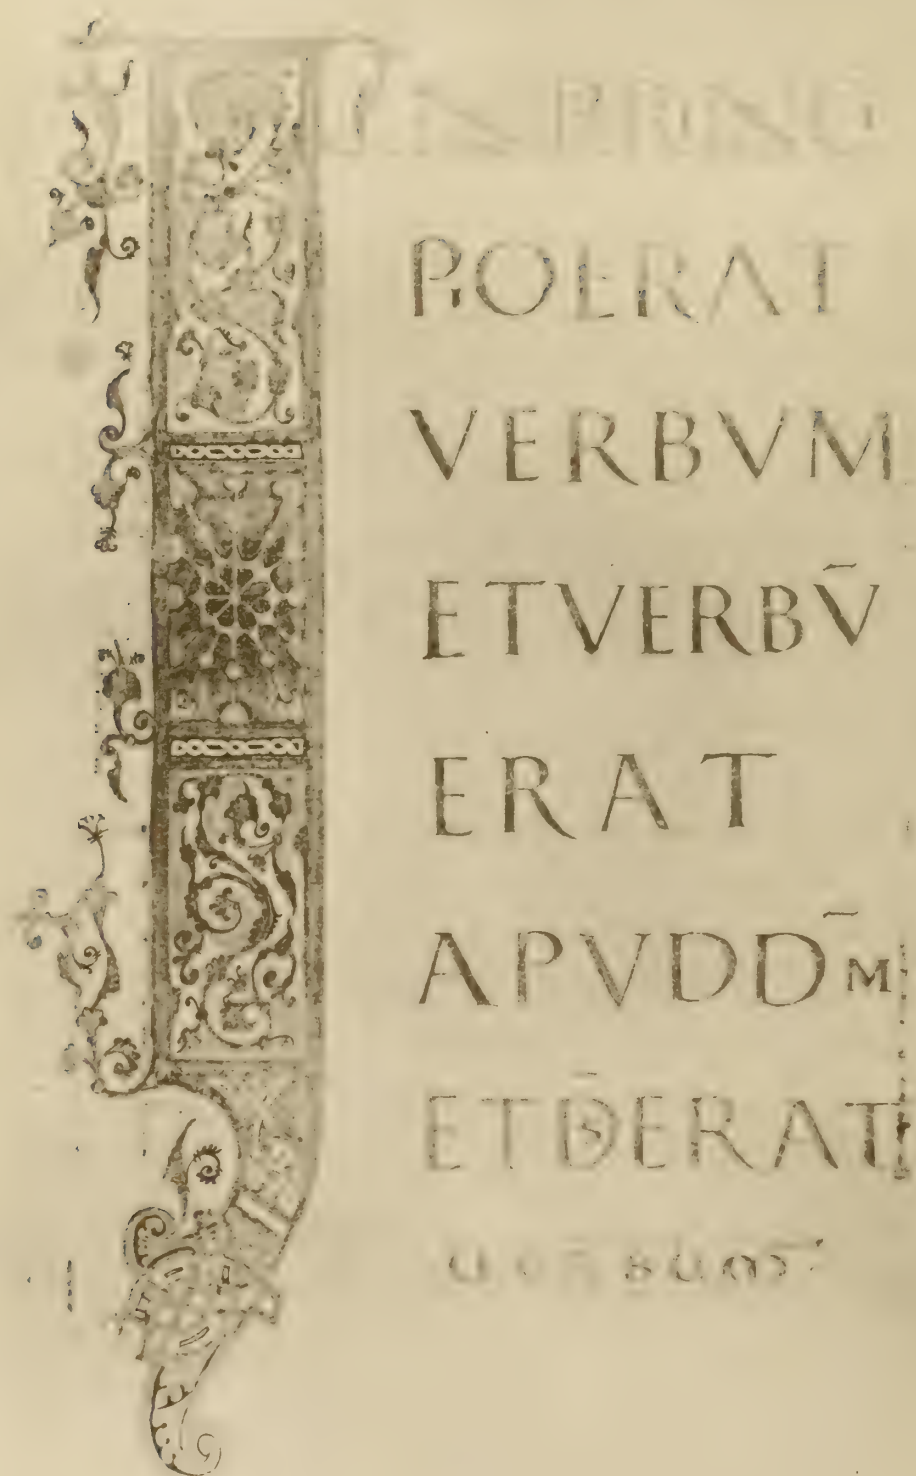 IN PRINCI
PIO ERAT
VERBVM
ET VERBV̄
ERAT
APVD DM̄
ET DS̄ ERAT
uerbum